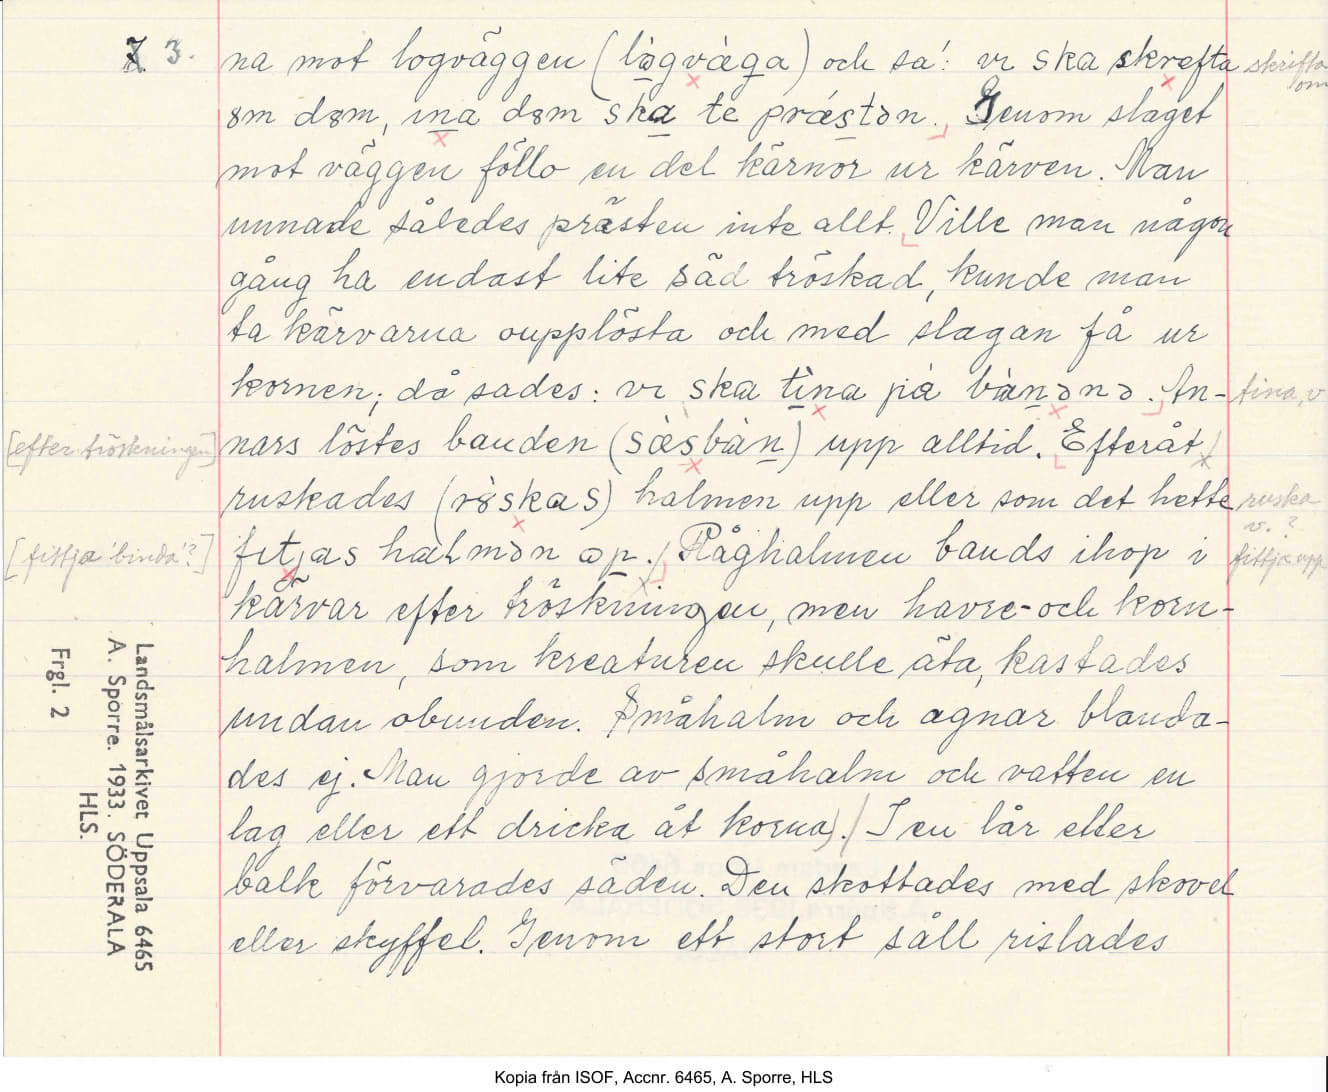 3.
na mot logväggen (lògvæ̀ga) och sa': vɩ ska skrefta
skrifta
om
om dom, ɩna dom ska te prǽstən. Genom slaget
mot väggen föllo en del kärnor ur kärven. Man
unnade således prästen inte allt. Ville man någon
gång ha endast lite säd tröskad, kunde man
ta kärvarna oupplösta och med slagan få ur
kornen; då sades: vɩ ska tìna på bànənə. An-
tina, v
[efter tröskningen]
nars löstes banden (sæsbàn) upp alltid. Efteråt
ruskades (röskas) halmen upp eller som det hette
ruska
v. ?
[fittja 'binda'?]
fɩtjas halmən op. Råghalmen bands ihop i
fittja upp
kärvar efter tröskningen, men havre- och korn-
halmen, som kreaturen skulle äta, kastades
undan obunden. Småhalm och agnar blanda-
des ej. Man gjorde av småhalm och vatten en
lag eller ett dricka åt korna). I en lår eller
balk förvarades säden. Den skottades med skovel
eller skyffel. Genom ett stort såll rislades
Landsmålsarkivet Uppsala 6465
A. Sporre. 1933. SÖDERALA
HLS.
Frgl. 2
Kopia från ISOF, Accnr. 6465, A. Sporre, HLS